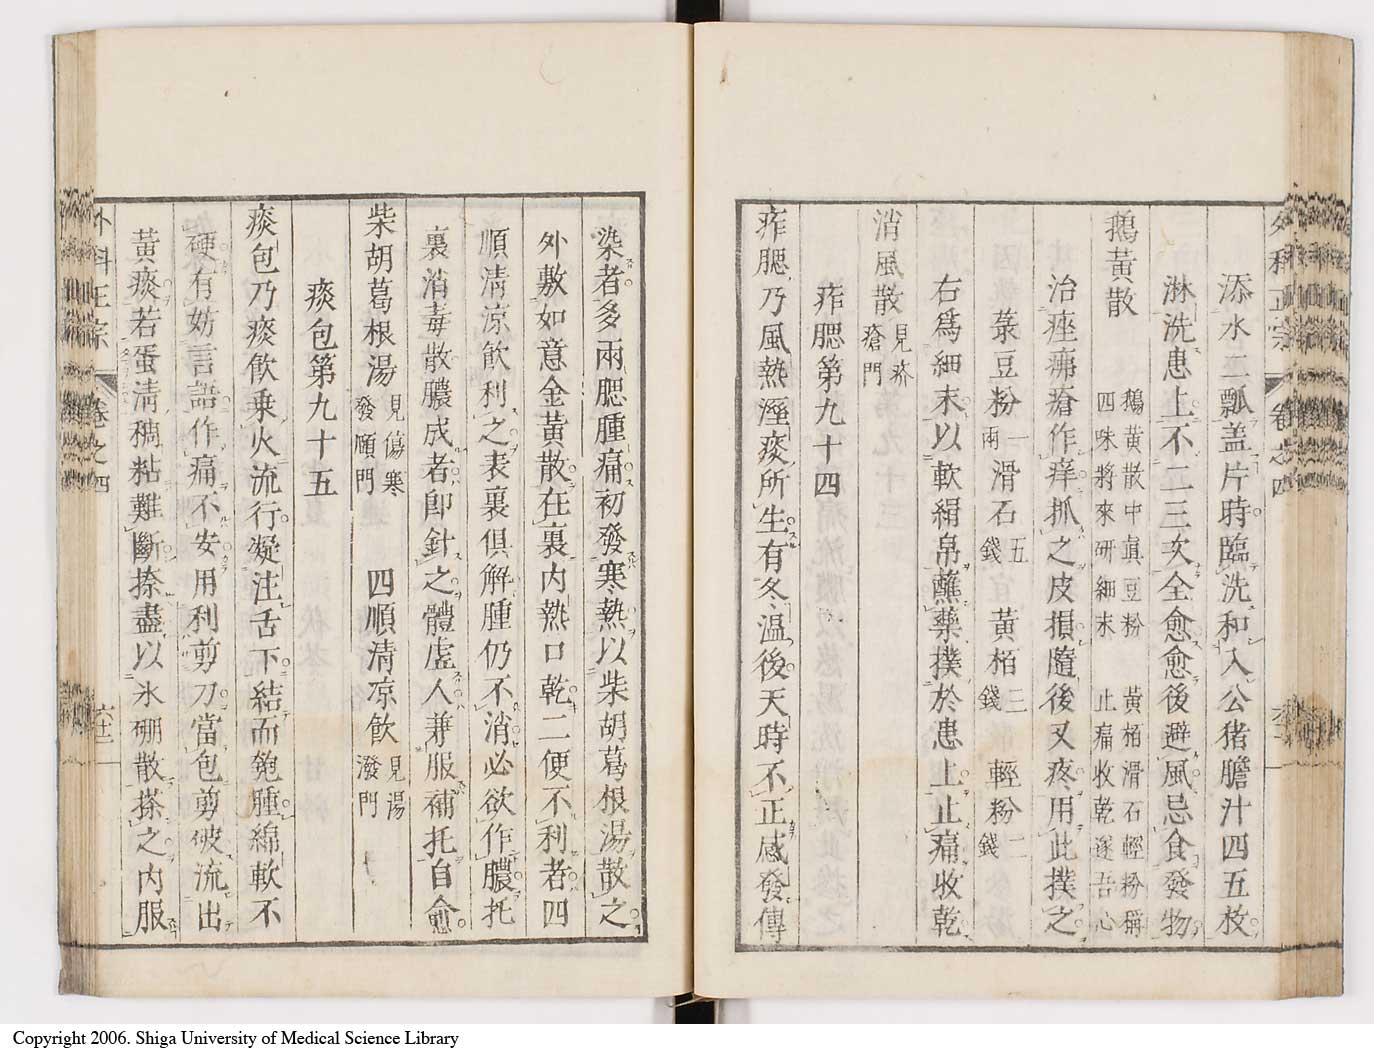 添水二瓢盖片時臨洗和入公猪膽汁四五枚
淋洗患上不二三次全愈愈後避風忌食發物
鵝黃散
鵝黃散中眞豆粉 黃栢滑石輕粉稱
四味將來研細末 止痛收乾遂吾心
治痤痱瘡作痒抓之皮損隨後又疼用此撲之
菉豆粉一兩 滑石五錢 黃栢三錢 輕粉二錢
右爲細末以軟絹帛蘸藥撲於患上止痛收乾
消風散見疥瘡門
痄腮第九十四
痄腮乃風熱溼痰所生有冬温後天時不正感發傳
外科正宗 卷之四
染者多兩腮腫痛初發寒熱以柴胡葛根湯散之
外敷如意金黃散在裏内熱口乾二便不利者四
順清涼飲利之表裏俱解腫仍不消必欲作膿托
裏消毒散膿成者卽針之體虛人兼服補托自愈
柴胡葛根湯見傷寒發頤門 四順清凉飲見湯潑門
痰包第九十五
痰包乃痰飲乗火流行凝注舌下結而匏腫綿軟不
硬有妨言語作痛不安用利剪刀當包剪破流出
黃痰若蛋清稠粘難斷捺盡以氷硼散搽之内服
外科正宗 卷之四 六十二
Copyright 2006. Shiga University of Medical Science Library